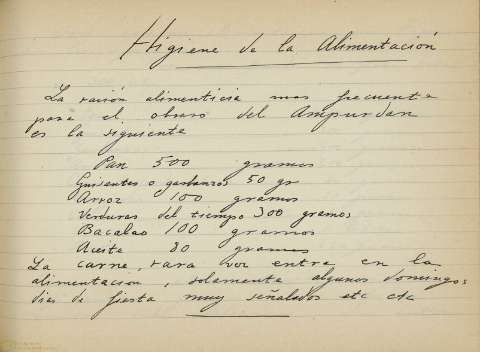 Higiene de la Alimentación
La ración alimenticia mas frecuente
para el obrero del Ampurdan
es la siguiente
Pan 500 gramos
Guisantes o garbanzos 50 gr
Arroz 100 gramos
Verduras del tiempo 300 gramos
Bacalao 100 gramos
Aceite 80 gramos
La carne, rara vez entra en la
alimentacion, solamente algunos domingos
dias de fiesta muy señalados etc etc